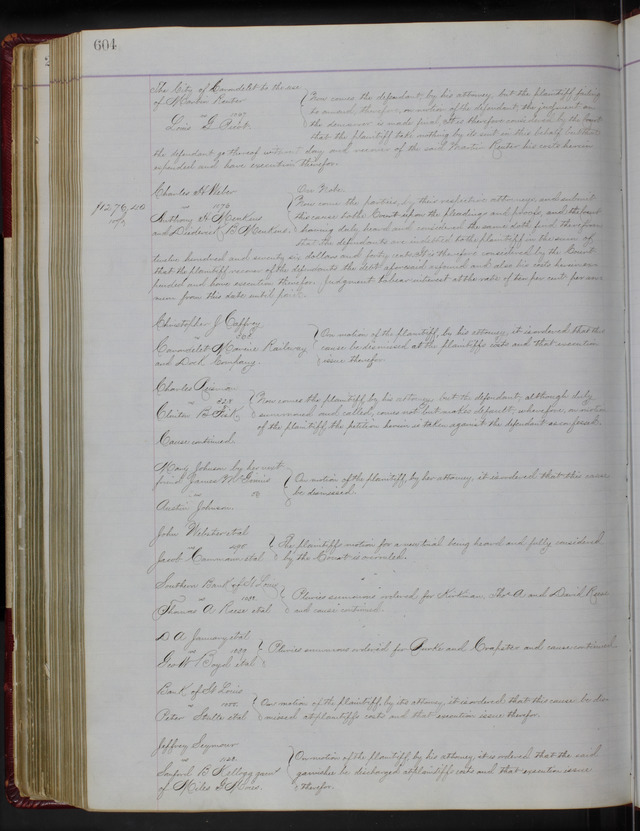 604
The City of Carondelet to the use
of Martin Reuter
vs
Louis G. Picot.
Now comes the defendant, by his attorney, but the plaintiff failing
to amend, therefore, on motion of the defendant, the judgment on
the demurrer is made final. It is therefore considered by the Court
that the plaintiff take nothing by its suit in this behalf, but that
the defendant go thereof without day and recover of the said Martin Reuter his costs herein
expended and have execution therefor.
$1276.40
10%
Charles H
vs
Anthony H Menkens
and Diederick B Menkens
On Note
Now come the parties, by their respective attorneys, and submit
this cause to the Court upon the pleadings and proofs, and the Court
having duly heard and considered the same doth find therefrom
that the defendants are indebted to the plaintiff in the sum of
twelve hundred and seventy six dollars and forty cents. It is therefore considered by the Court
that the plaintiff recover of the defendants the debt aforesaid and also his costs herein ex-
pended and have execution therefor. Judgment to bear interest at the rate of ten per cent per an-
num from this date until paid.
Christopher J Caffray
vs
Carondelet Marine Railway
and Dock Company.
On motion of the plaintiff, by his attorney, it is ordered that this
cause be dismissed at the plaintiffs costs and that execution
issue therefor.
Charles
vs
Clinton B Fisk
Now comes the plaintiff, by his attorney, but the defendant, although duly
summoned and called, comes not but makes default; wherefore, on motion
of the plaintiff, the petition herein is taken against the defendant as confessed.
Cause continued.
Mary Johnson by her next
friend James
vs
Austin Johnson.
On motion of the plaintiff, by her attorney, it is ordered that this cause
be dismissed.
John Webster et al
vs
Jacob et al
The plaintiffs motion for a new trial being heard and fully considered
by the Court is overruled.
Southern Bank of St Louis
vs
Thomas A. Reese et al
Pluries summons ordered for Kirkman, Thos A and David Reese
and cause continued.
D A January et al
vs
Geo W Boyd et al
Pluries summons ordered for Burke and Crapster and cause continued.
Bank of St Louis
vs
Peter et al
On motion of the plaintiff, by its attorney, it is ordered that this cause be dis-
missed at plaintiffs costs and that execution issue therefor.
Jeffrey Seymour
vs
Sanford B Kellogg garn
of Miles G Moies.
On motion of the plaintiff, by his attorney, it is ordered that the said
garnishee be discharged at plaintiffs costs and that execution issue
therefor.